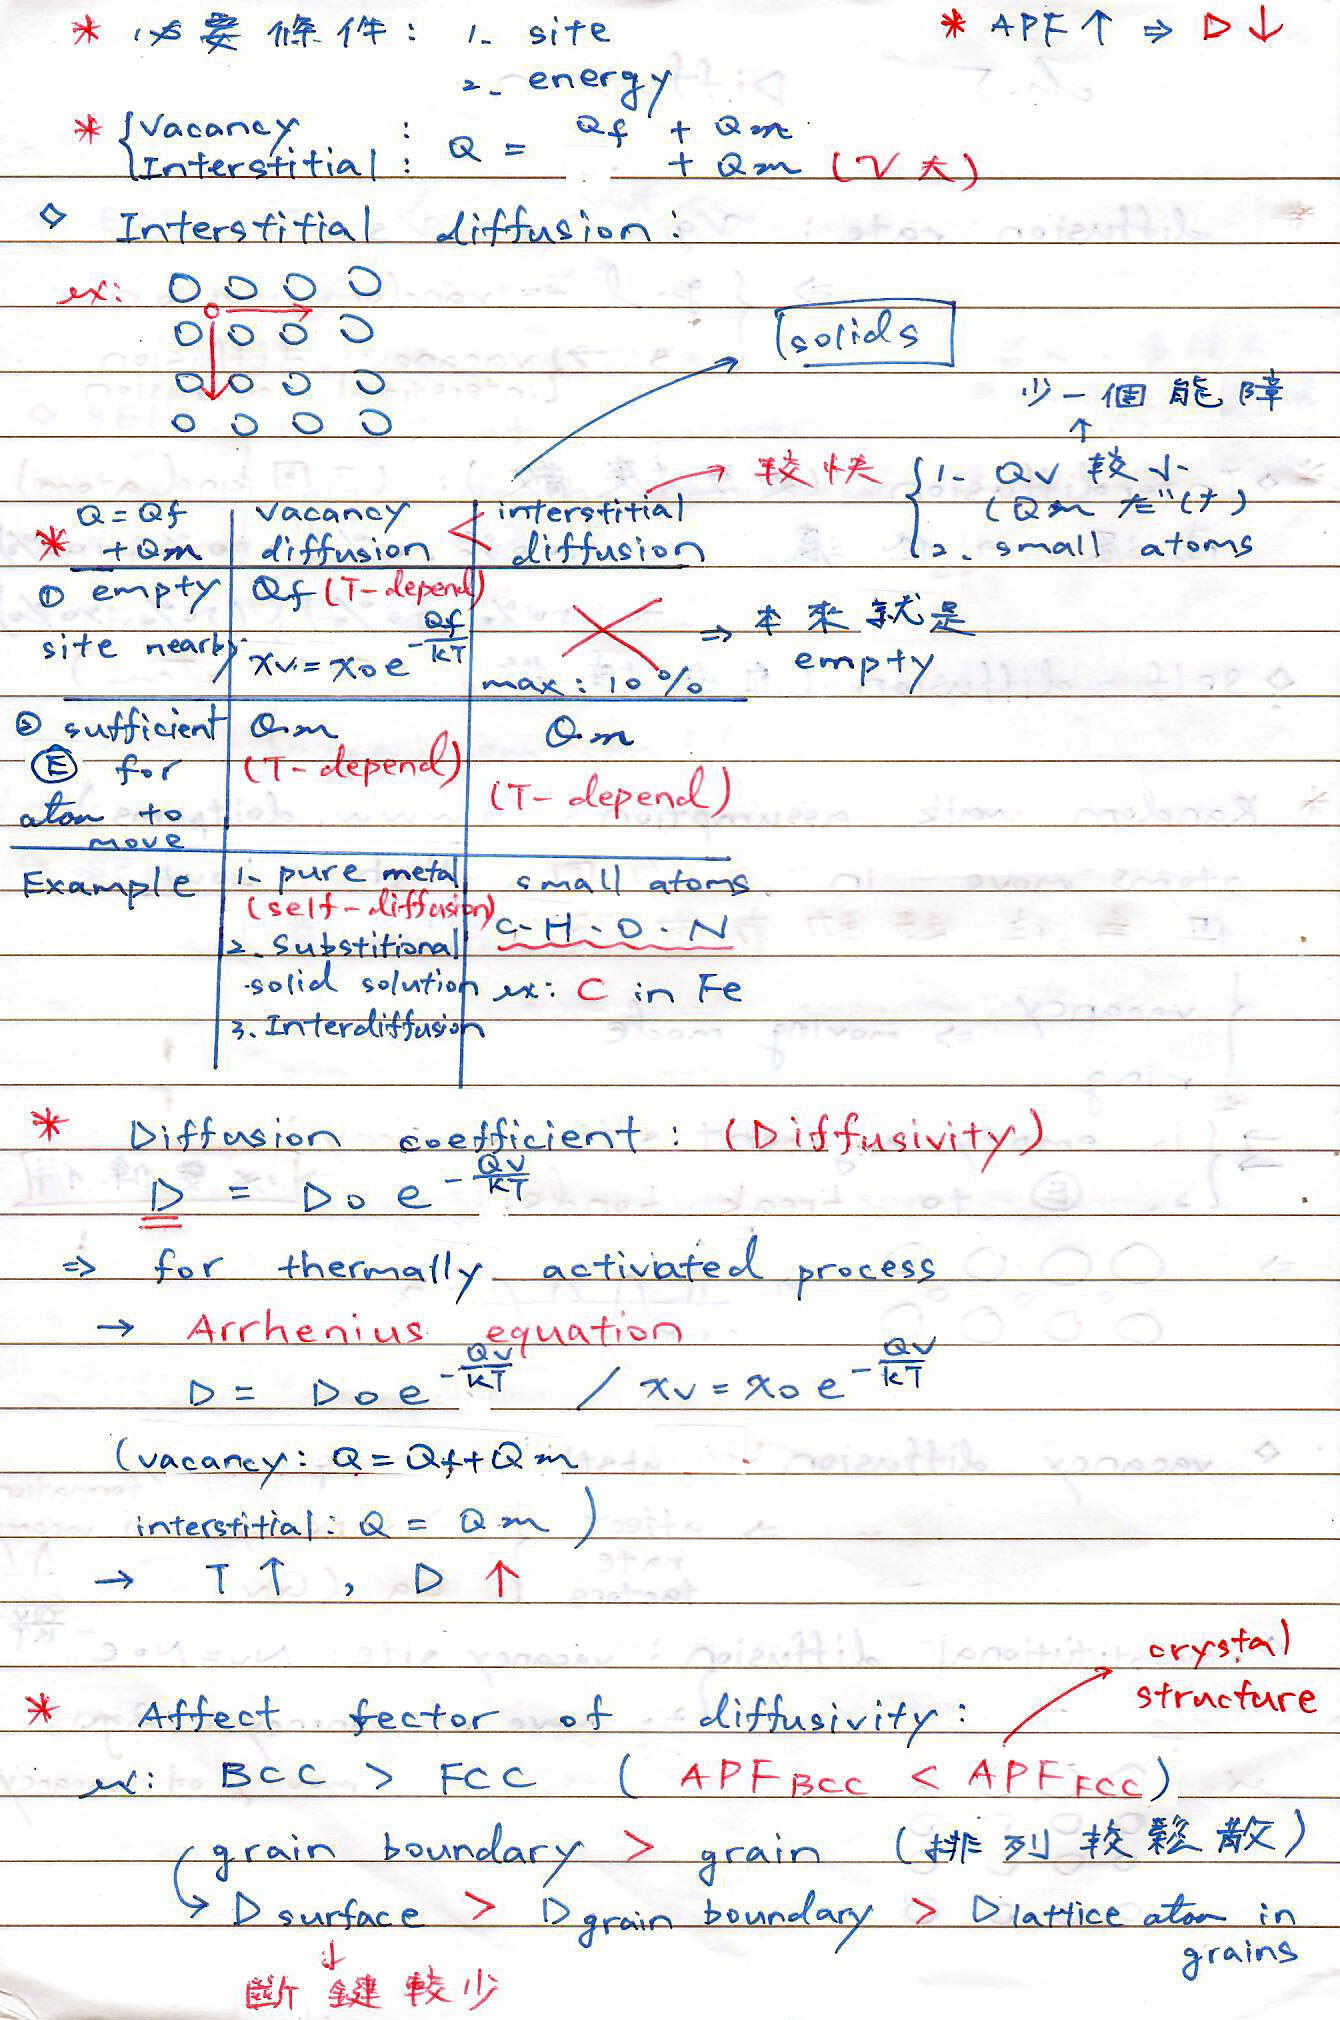 * 必要條件: 1. site
* APF↑ ⇒ D↓
2. energy
* Vacancy : Q = Qf + Qm
Interstitial : + Qm (V大)
◇ Interstitial diffusion:
ex:
solids
少一個能障
↑
較快
1. Qv 較小
2. small atoms
* Q=Qf +Qm
vacancy diffusion < interstitial diffusion
① empty site nearby
Qf (T-depend)
xv = x0 e^(-Qf/kT)
max: 10%
⇒ 本來就是 empty
② sufficient Ⓔ for atom to move
Qm (T-depend)
Qm (T-depend)
Example
1. pure metal
(self-diffusion)
2. Substitional
solid solution
3. Interdiffusion
small atoms
C.H.O.N
ex: C in Fe
* Diffusion coefficient: (Diffusivity)
D = D0 e^(-Qv/kT)
⇒ for thermally activiated process
→ Arrhenius equation
D = D0 e^(-Qv/kT) / xv = x0 e^(-Qv/kT)
(vacancy: Q = Qf+Qm
interstitial: Q = Qm )
→ T↑, D↑
crystal
structure
* Affect fector of diffusivity:
ex: BCC > FCC ( APF BCC < APF FCC)
grain boundary > grain (排列較鬆散)
↳ D surface > D grain boundary > D lattice atom in
grains
↓
斷鍵較少